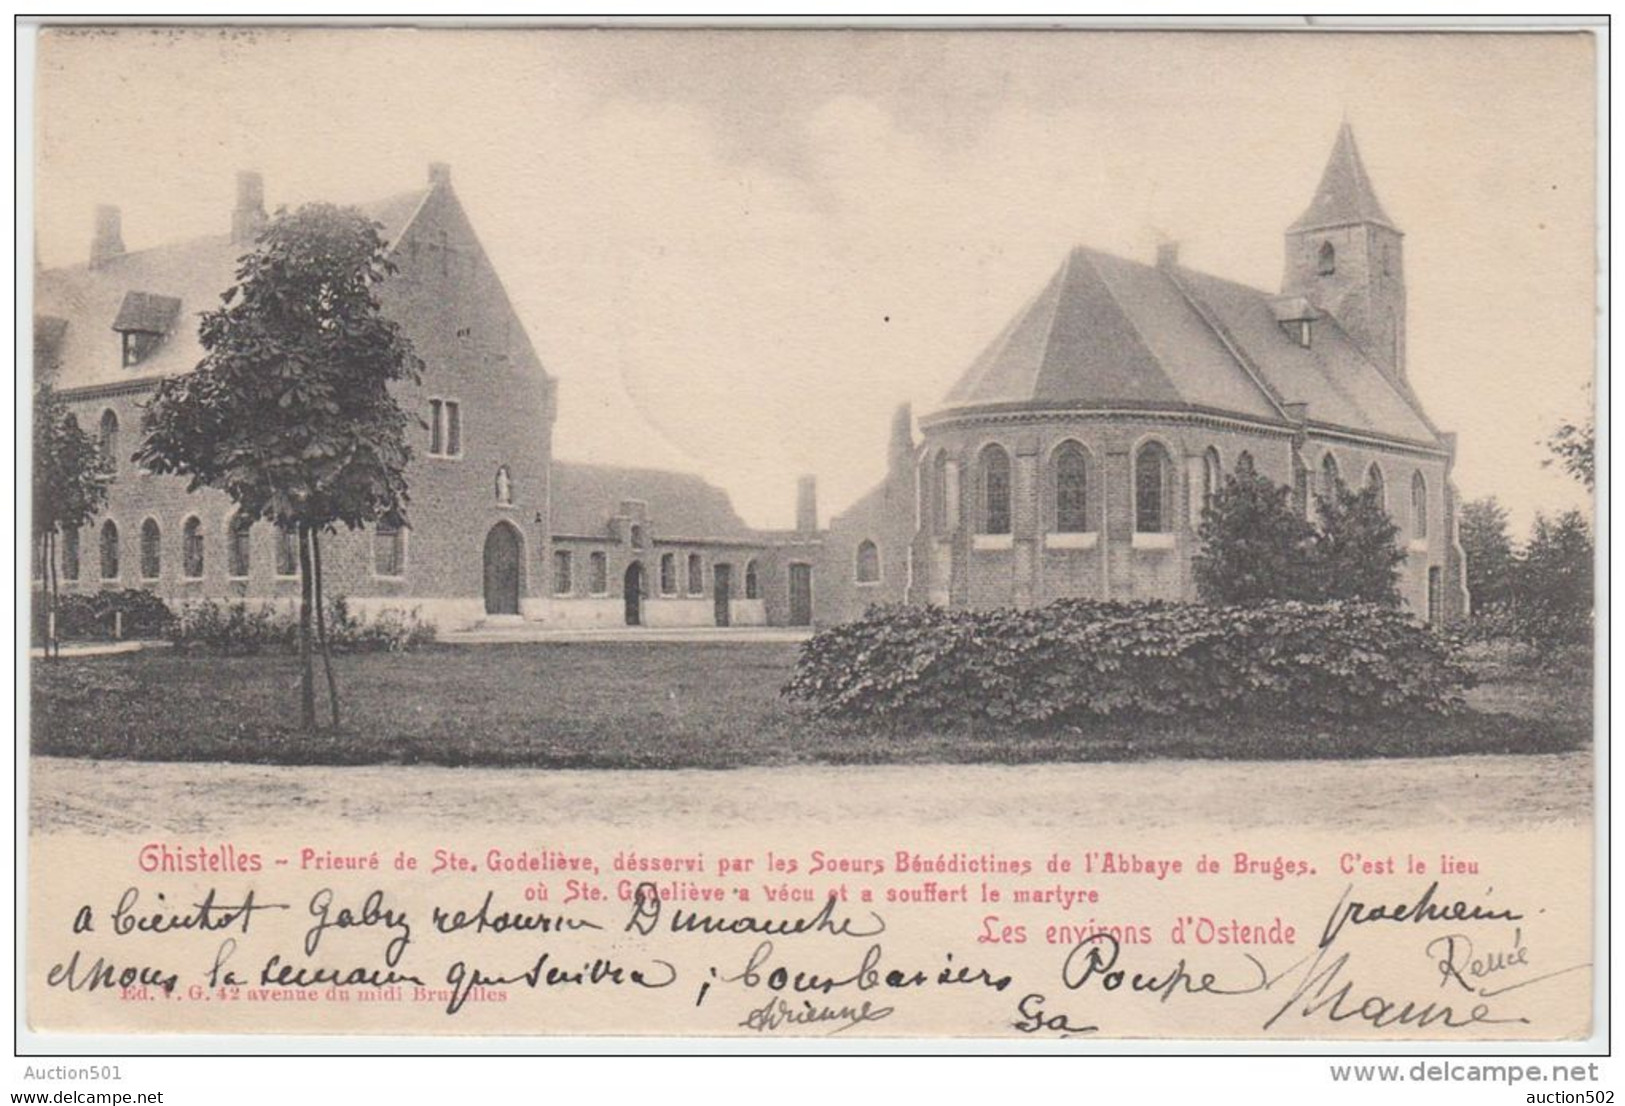 Ghistelles - Prieuré de Ste. Godeliève, désservi par les Soeurs Bénédictines de l'Abbaye de Bruges. C'est le lieu
où Ste. Godeliève a vécu et a souffert le martyre
Les environs d'Ostende
a bientot Gabry retourne Dimanche prochain.
et nous la semaine qui suivra ; bons baisers Poupe
Renée
Ed. V. G. 42 avenue du midi Bruxelles
Adrienne Ga
Auction501
www.delcampe.net
auction502
auction502